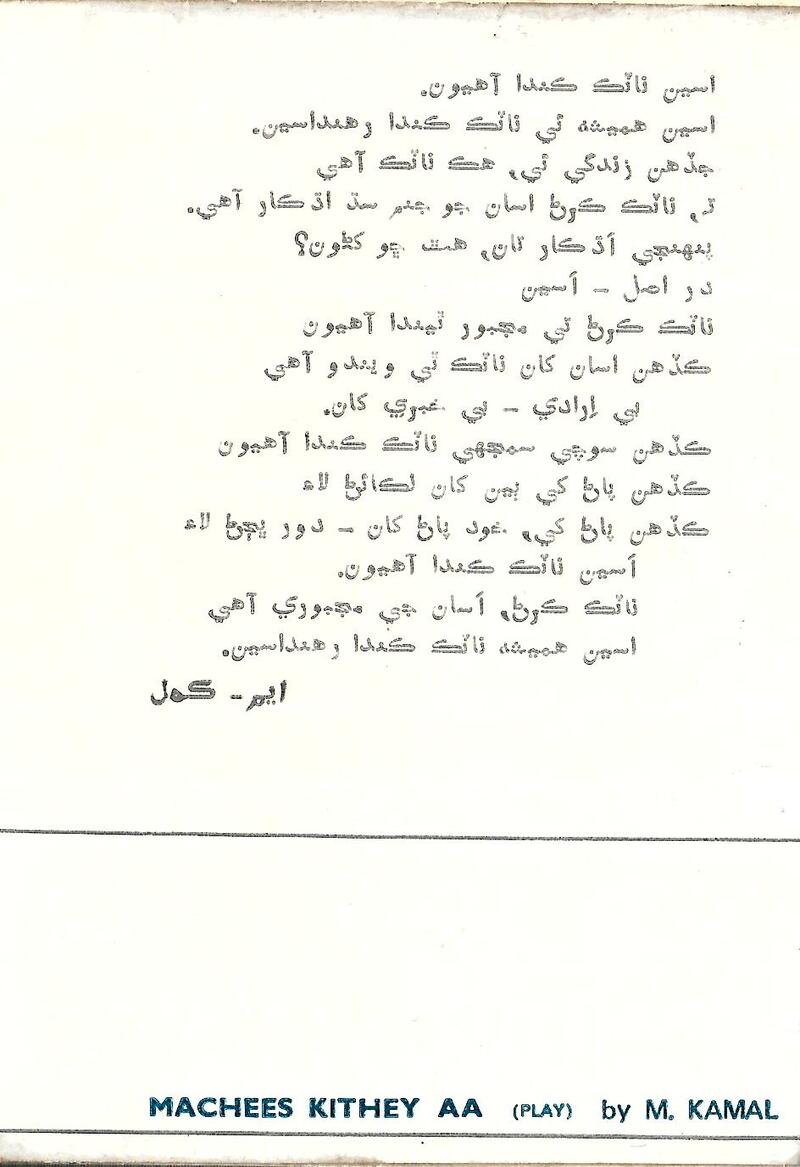 اسين ناٽڪ ڪندا آهيون.
اسين هميشه ئي ناٽڪ ڪندا رهنداسين.
جڏهن زندگي ئي، هڪ ناٽڪ آهي
تہ، ناٽڪ ڪرڻ اسان جو جنم سڌ اڌڪار آهي.
پنهنجي اَڌڪار تان، هٿ ڇو کڻون؟
در اصل - اَسين
ناٽڪ ڪرڻ تي مجبور ٿيندا آهيون
ڪڏهن اسان کان ناٽڪ ٿي ويندو آهي
بي اِرادي - بي خبري کان.
ڪڏهن سوچي سمجهي ناٽڪ ڪندا آهيون
ڪڏهن پاڻ کي ٻين کان لڪائڻ لاءِ
ڪڏهن پاڻ کي، خود پاڻ کان - دور ڀڄڻ لاءِ
اَسين ناٽڪ ڪندا آهيون.
ناٽڪ ڪرڻ، اَسان جي مجبوري آهي
اسين هميشه ناٽڪ ڪندا رهنداسين.
ايم - ڪمل
MACHEES KITHEY AA (PLAY) by M. KAMAL